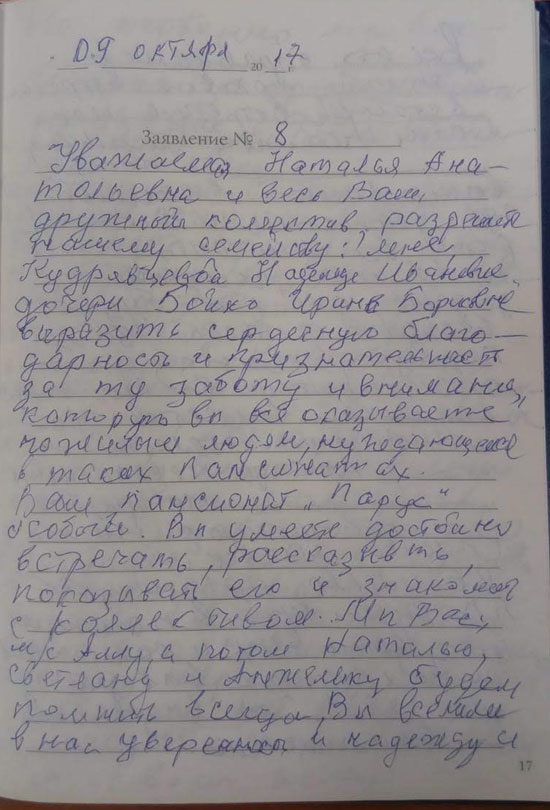 09 октября 2017 г.
Заявление № 8
Уважаемая Наталья Ана-
тольевна и весь Ваш
дружный коллектив, разрешите
нашему семейству: мне,
Кудрявцевой Надежде Ивановне,
дочери Бойко Ирине Борисовне
выразить сердечную благо-
дарность и признательность
за ту заботу и внимание,
которую вы все оказываете
пожилым людям, нуждающимся
в таких пансионатах.
Ваш пансионат „Парус"
особый. Вы умеете достойно
встречать, рассказывать,
показывать его и знакомить
с коллективом. Мы Вас,
м/с Аллу, а потом Наталью,
Светлану и Анжелику будем
помнить всегда. Вы вселили
в нас уверенность и надежду и
17